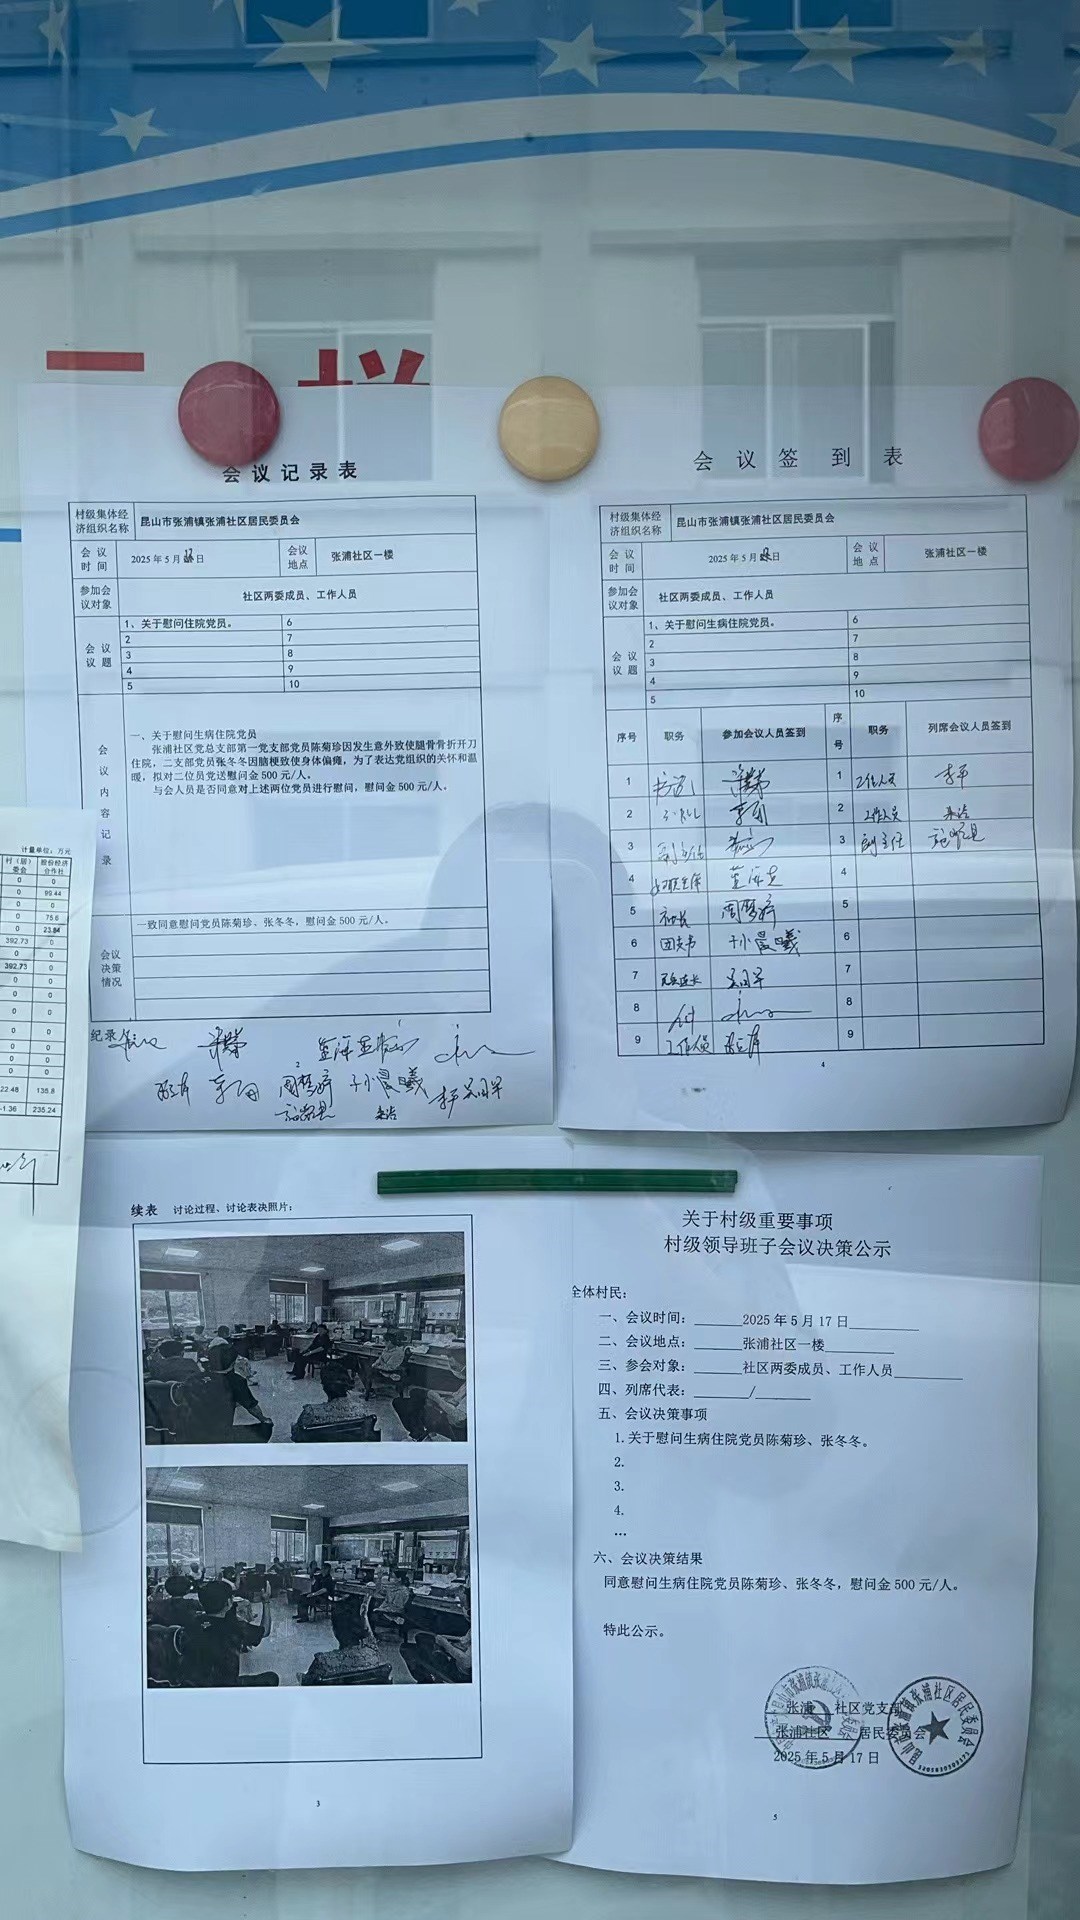 会议记录表
村级集体经
济组织名称
昆山市张浦镇张浦社区居民委员会
会 议
时 间
2025年5月17日
会议
地点
张浦社区一楼
参加会
议对象
社区两委成员、工作人员
会 议
议 题
1、关于慰问住院党员。
6
2
7
3
8
4
9
5
10
会
议
内
容
记
录
一、关于慰问生病住院党员
张浦社区党总支部第一党支部党员陈菊珍因发生意外致使腿骨骨折开刀
住院，二支部党员张冬冬因脑梗致使身体偏瘫，为了表达党组织的关怀和温
暖，拟对二位员党送慰问金500元/人。
与会人员是否同意对上述两位党员进行慰问，慰问金500元/人。
会议
决策
情况
一致同意慰问党员陈菊珍、张冬冬，慰问金500元/人。
纪录
周梦婷 孙晨曦
2
会议签到表
村级集体经
济组织名称
昆山市张浦镇张浦社区居民委员会
会 议
时 间
2025年5月 日
会 议
地 点
张浦社区一楼
参加会
议对象
社区两委成员、工作人员
会 议
议 题
1、关于慰问生病住院党员。
6
2
7
3
8
4
9
5
10
序号
职务
参加会议人员签到
序
号
职务
列席会议人员签到
1
1 工作人员 李平
2
2 工作人员 朱洁
3 副主任
3 副主任
4
4
5
周梦婷
5
6 团支书 孙晨曦
6
7 民兵连长
7
8
8
9 工作人员
9
4
计量单位：万元
村（居）
委会
股份经济
合作社
0 0
0 99.44
0 0
0 75.6
0 23.84
392.73 0
0 0
392.73 0
0 0
0 0
0 0
0 0
0 0
0 0
0 0
22.48 135.8
-1.36 235.24
续表 讨论过程、讨论表决照片：
3
关于村级重要事项
村级领导班子会议决策公示
全体村民：
一、会议时间：2025年5月17日
二、会议地点：张浦社区一楼
三、参会对象：社区两委成员、工作人员
四、列席代表：/
五、会议决策事项
1.关于慰问生病住院党员陈菊珍、张冬冬。
2.
3.
4.
…
六、会议决策结果
同意慰问生病住院党员陈菊珍、张冬冬，慰问金500元/人。
特此公示。
张浦 社区党支部
张浦社区 居民委员会
2025年5月17日
昆山市张浦镇张浦社区居民委员会
5